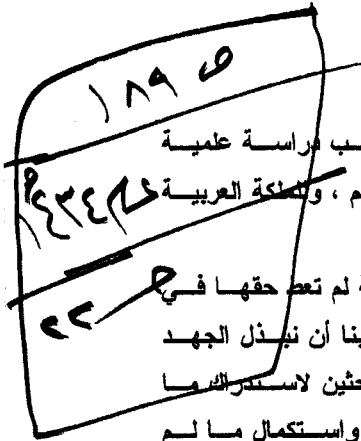 ص ١٨٩
ـب دراسة علمية
م ، والمملكة العربية
١٤٣٤
ة لم تعط حقها في
٢٢
ينا أن نبذل الجهد
حثين لاستدراك ما
واستكمال ما لم